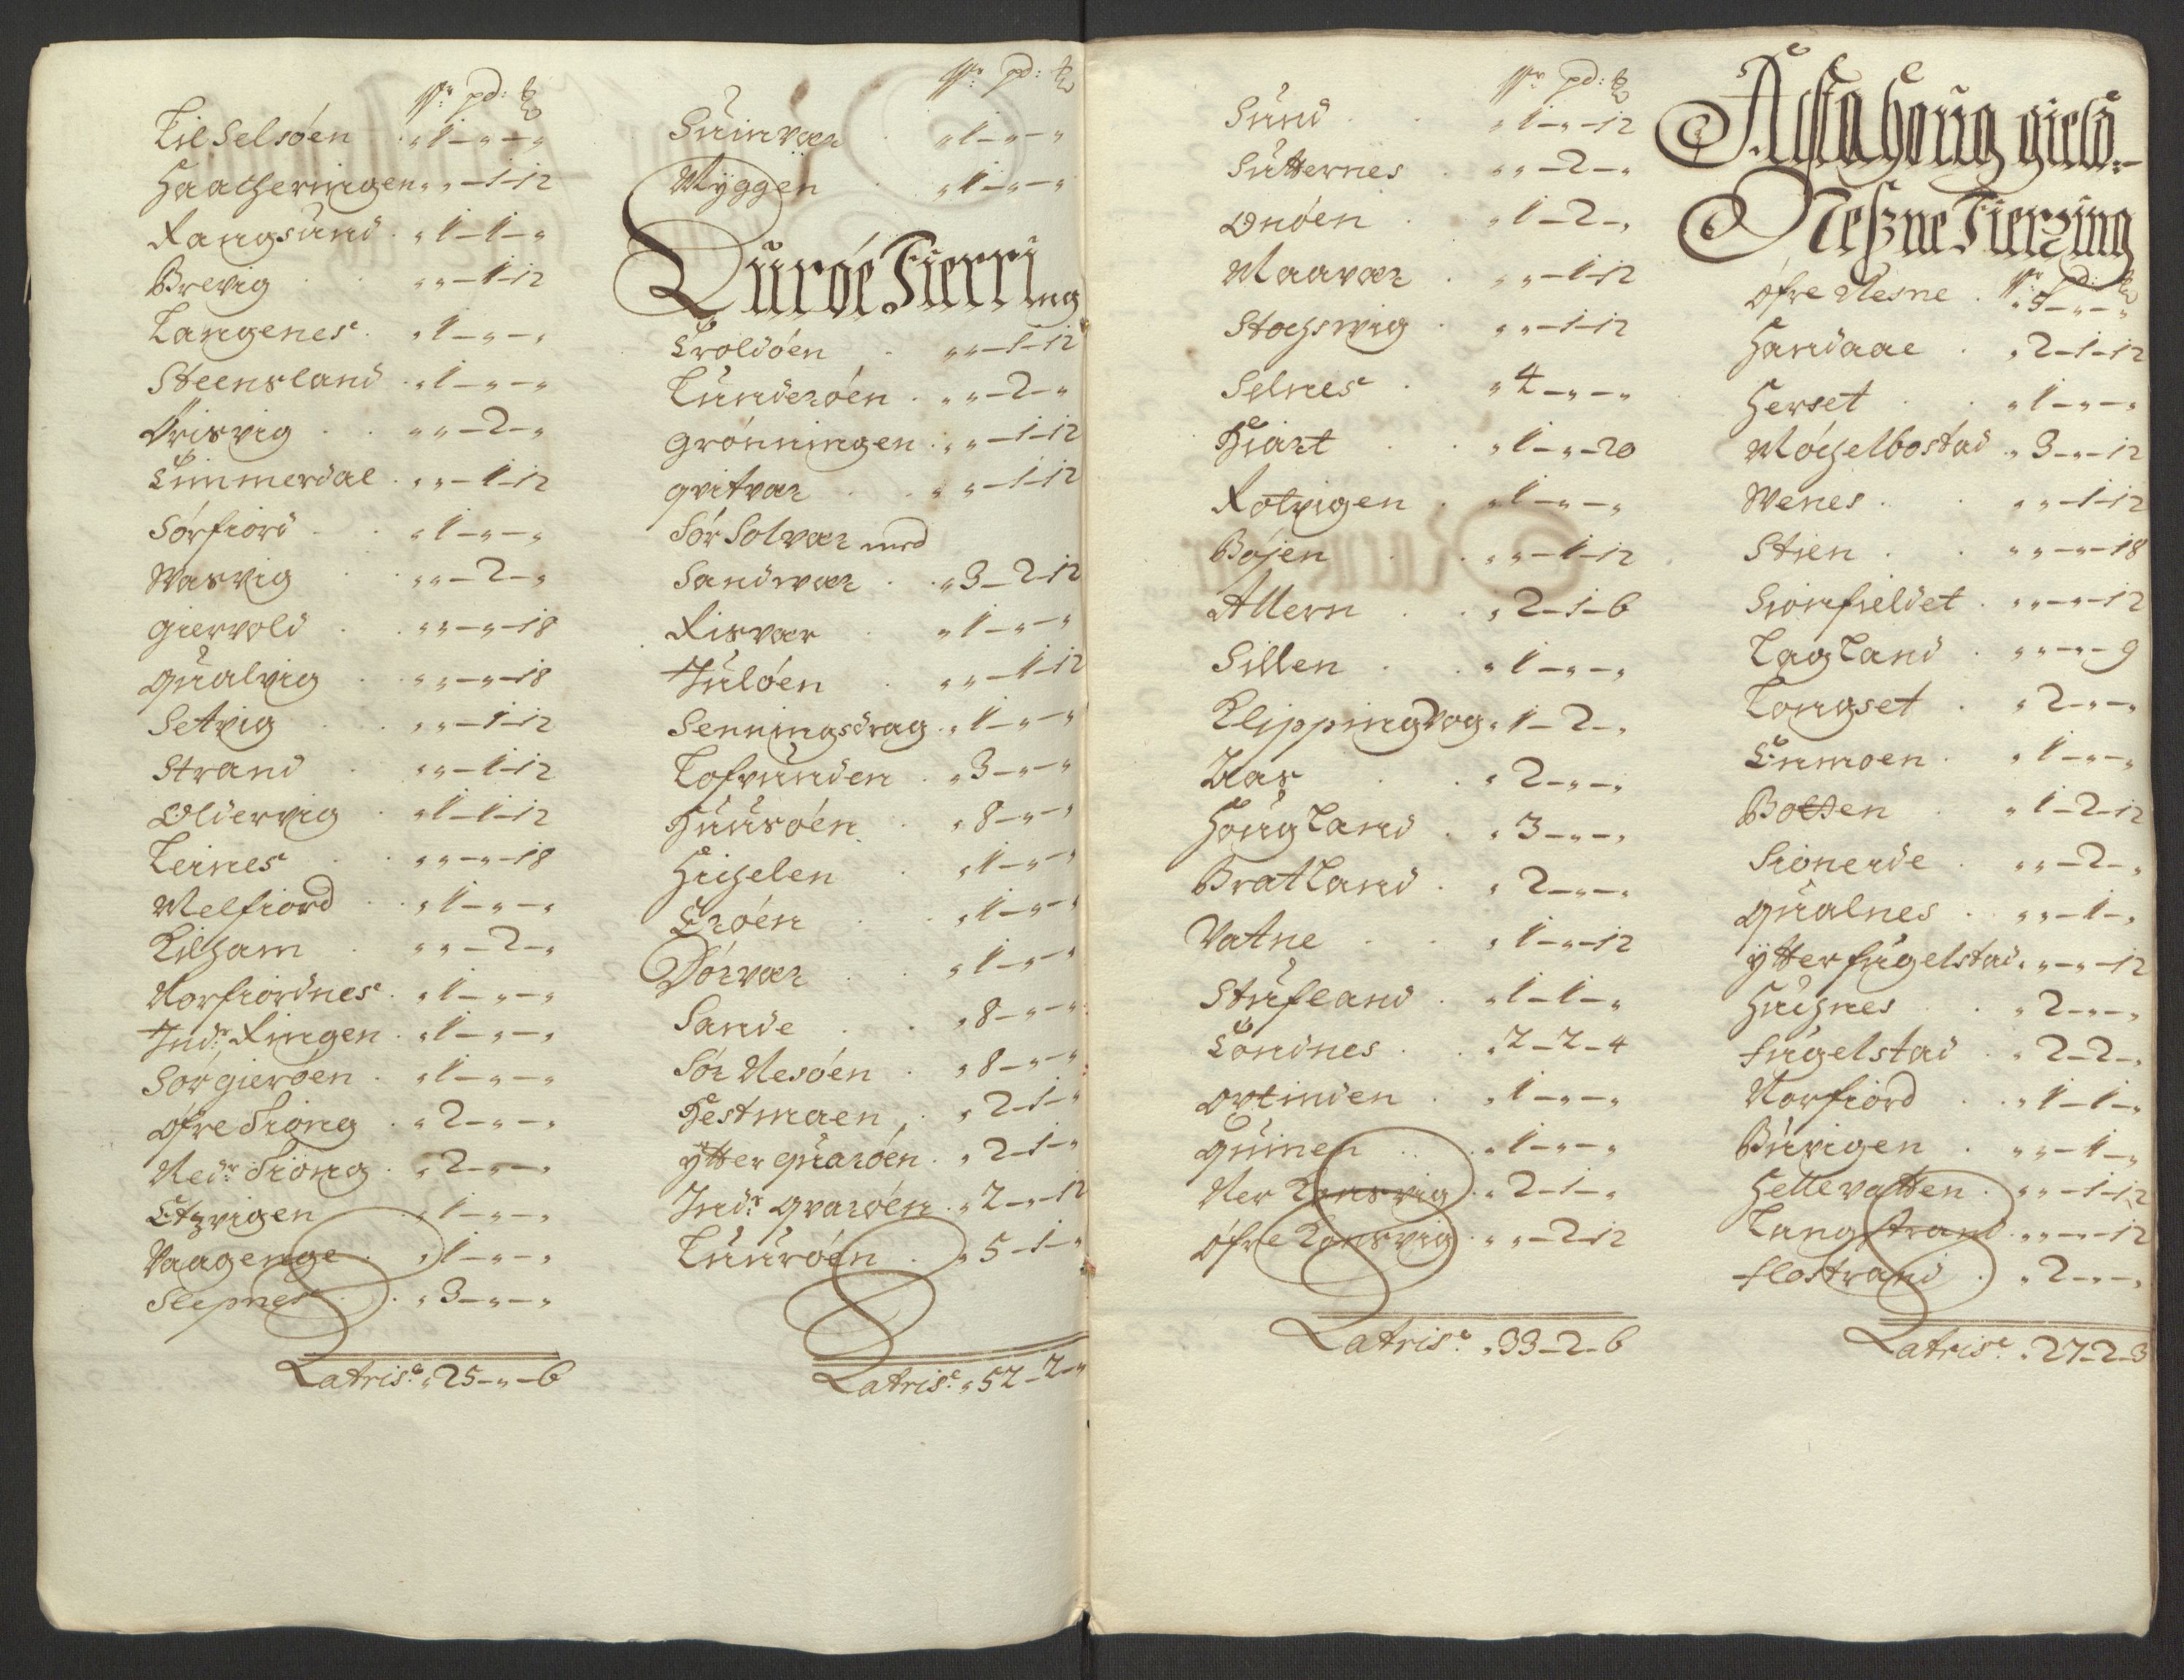 Vr: pd: ℔
Til Selsöen . „1-„-„
Haacheringen „„-1-12
Rangsund . „1-1-„
Brevig . . „„-1-12
Langenes . „1-„-„
Steensland . „1-„-„
Örisvig . . „„-2-„
Simmerdal . „„-1-12
Sörfiord . . „1-„-„
Wasvig . . „„-2-„
Giervold . . „„-„-18
Qualvig . . „„-„-18
Setvig . . „„-1-12
Strand . . „„-1-12
Oldervig . „1-1-12
Leines . . „„-„-18
Melfiord . . „1-„-„
Kilham . . „„-2-„
Norfiordnes . „1-„-„
Indr Ringen . „1-„-„
Sörgieröen . „1-„-„
Öfre Siong . „2-„-„
Nedr Siong . „2-„-„
Etzvigen . „1-„-„
Vaagenge . „1-„-„
Slepnes . . „3-„-„
Latris: „25-„-6
Vr: pd: ℔
Suinvær . „1-„-„
Myggen . „1-„-„
Luröe Fierring
Troldöen . „„-1-12
Lunderöen . „„-2-„
Grönningen . „„-1-12
Qvitvær . . „„-1-12
Sör Solvær med
Sandvær . . „3-2-12
Risvær . „1-„-„
Juløen . „„-1-12
Senningsdrag . „1-„-„
Lofvunden . „3-„-„
Huusöen . „8-„-„
Hichelen . „1-„-„
Eröen . . „1-„-„
Dörvær . . „1-„-„
Sande . . „8-„-„
Sör Nesöen . „8-„-„
Hestmaen . „2-1-„
Ytter Quaröen . „2-1-„
Indr Qvaröen . „2-„-12
Luuröen . „5-1-„
Latris: „52-2-„
Vr: pd: ℔
Sund . . „1-„-12
Sutternes . „„-2-„
Onöen . „1-2-„
Maavær . „„-1-12
Stochsvig . „„-1-12
Selnes . „4-„-„
Hiart . . „1-„-20
Rotvigen . „1-„-„
Böjen . . „„-1-12
Altern . . „2-1-6
Sillen . . „1-„-„
Klippingvog „1-2-„
Aas . . „2-„-„
Hougland . „3-„-„
Bratland . „2-„-„
Vatne . . „1-„-12
Stufland . „1-1-„
Tondnes . . „2-2-4
Ortinden . „1-„-„
Quinen . . „1-„-„
Ner Konsvig . „2-1-„
Öfre Konsvig . „„-2-12
Latris: „33-2-6
Alstahoug gield:
Neszne Fierring
Vr: pd: ℔
Öfre Nesne . „5-„-„
Handaal . „2-1-12
Herset . . „1-„-„
Möchelbostad . „3-„-12
Wenes . . „„-1-12
Stien . . „„-„-18
Sionfieldet . „„-„-12
Lagland . „„-„-9
Longset . „2-„-„
Enmoen . „1-„-„
Botten . „1-2-12
Sioneide . „„-2-„
Qualnes . „„-1-„
Ytter fugelstad „„-„-12
Hugnes . . „2-„-„
Fugelstad . „2-2-„
Norfiord . . „1-1-„
Buvigen . „„-1-„
Hellevatten . „„-1-12
Langstrand . „„-„-12
Flostrand . „2-„-„
Latris: „27-2-3